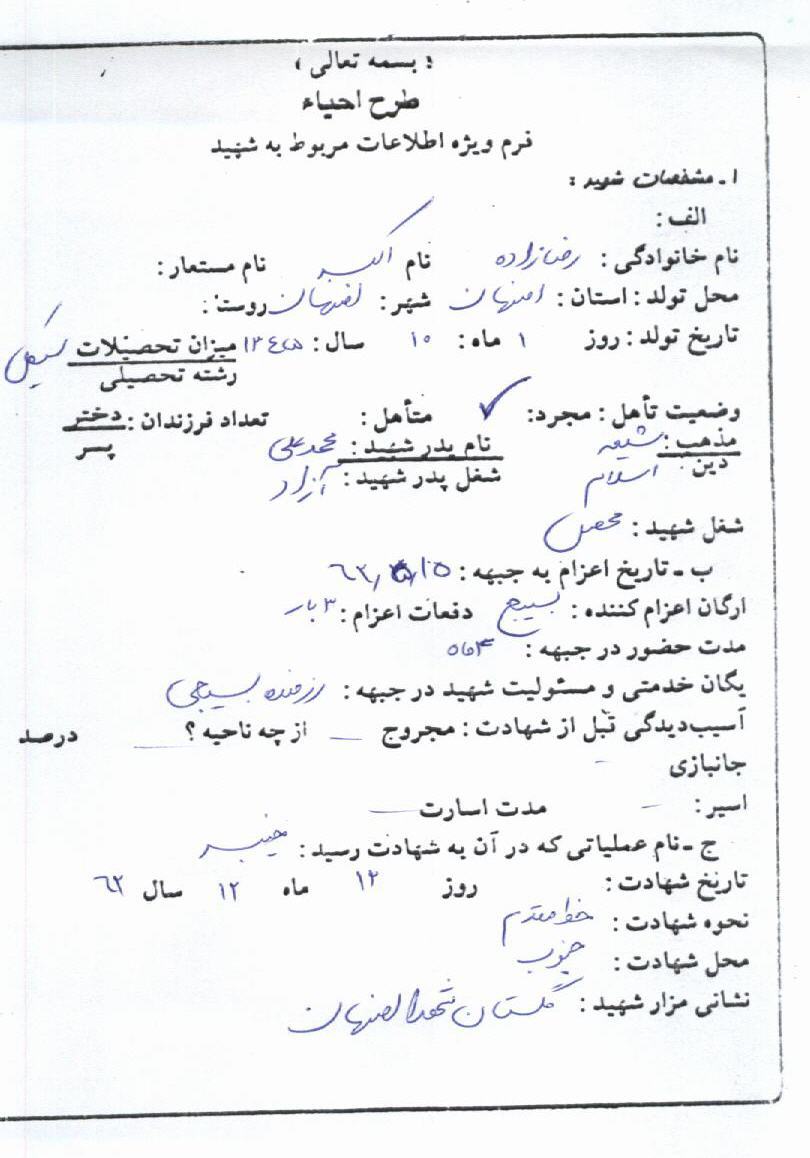 « بسمه تعالی »
طرح احیاء
فرم ویژه اطلاعات مربوط به شهید
۱ـ مشخصات شهید :
الف :
نام خانوادگی : رضازاده نام اکبر نام مستعار :
محل تولد : استان : اصفهان شهر : اصفهان روستا :
تاریخ تولد : روز ۱ ماه : ۱۰ سال : ۱۳۴۵ میزان تحصیلات سیکل
رشته تحصیلی
وضعیت تأهل : مجرد : ✓ متأهل : تعداد فرزندان : دختر
پسر
مذهب : شیعه نام پدر شهید : محمدعلی
دین : اسلام شغل پدر شهید : آزاد
شغل شهید : محصل
ب ـ تاریخ اعزام به جبهه : ۶۲
ارگان اعزام کننده : بسیج دفعات اعزام : ۳ بار
مدت حضور در جبهه : ۴ماه
یگان خدمتی و مسئولیت شهید در جبهه : رزمنده بسیجی
آسیب‌دیدگی قبل از شهادت : مجروح — از چه ناحیه ؟ — درصد
جانبازی -
اسیر : — مدت اسارت —
ج ـ نام عملیاتی که در آن به شهادت رسید : خیبر
تاریخ شهادت : روز ۱۲ ماه ۱۲ سال ۶۲
نحوه شهادت : خط مقدم
محل شهادت : جنوب
نشانی مزار شهید : گلستان شهدا اصفهان